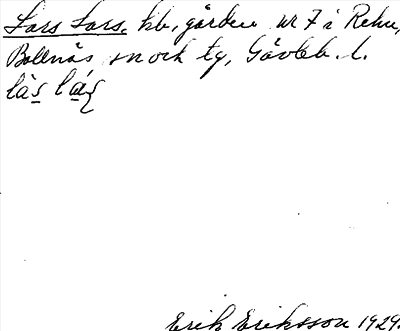 Lars Lars, kb, gården nr 7 i Rehn,
Bollnäs sn och tg, Gävleb. l.
Erik Eriksson 1929.